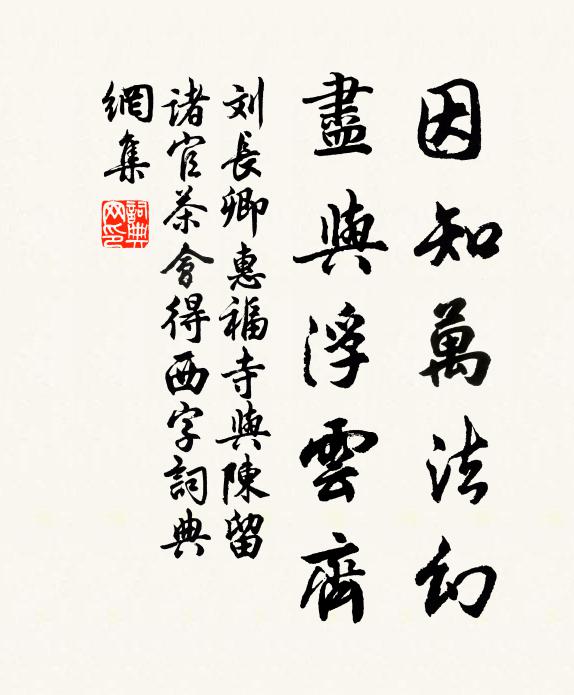 因知萬法幻
盡與浮雲齊
刘長卿惠福寺與陳留
諸官茶會得西字詞典
網集
詞典網印